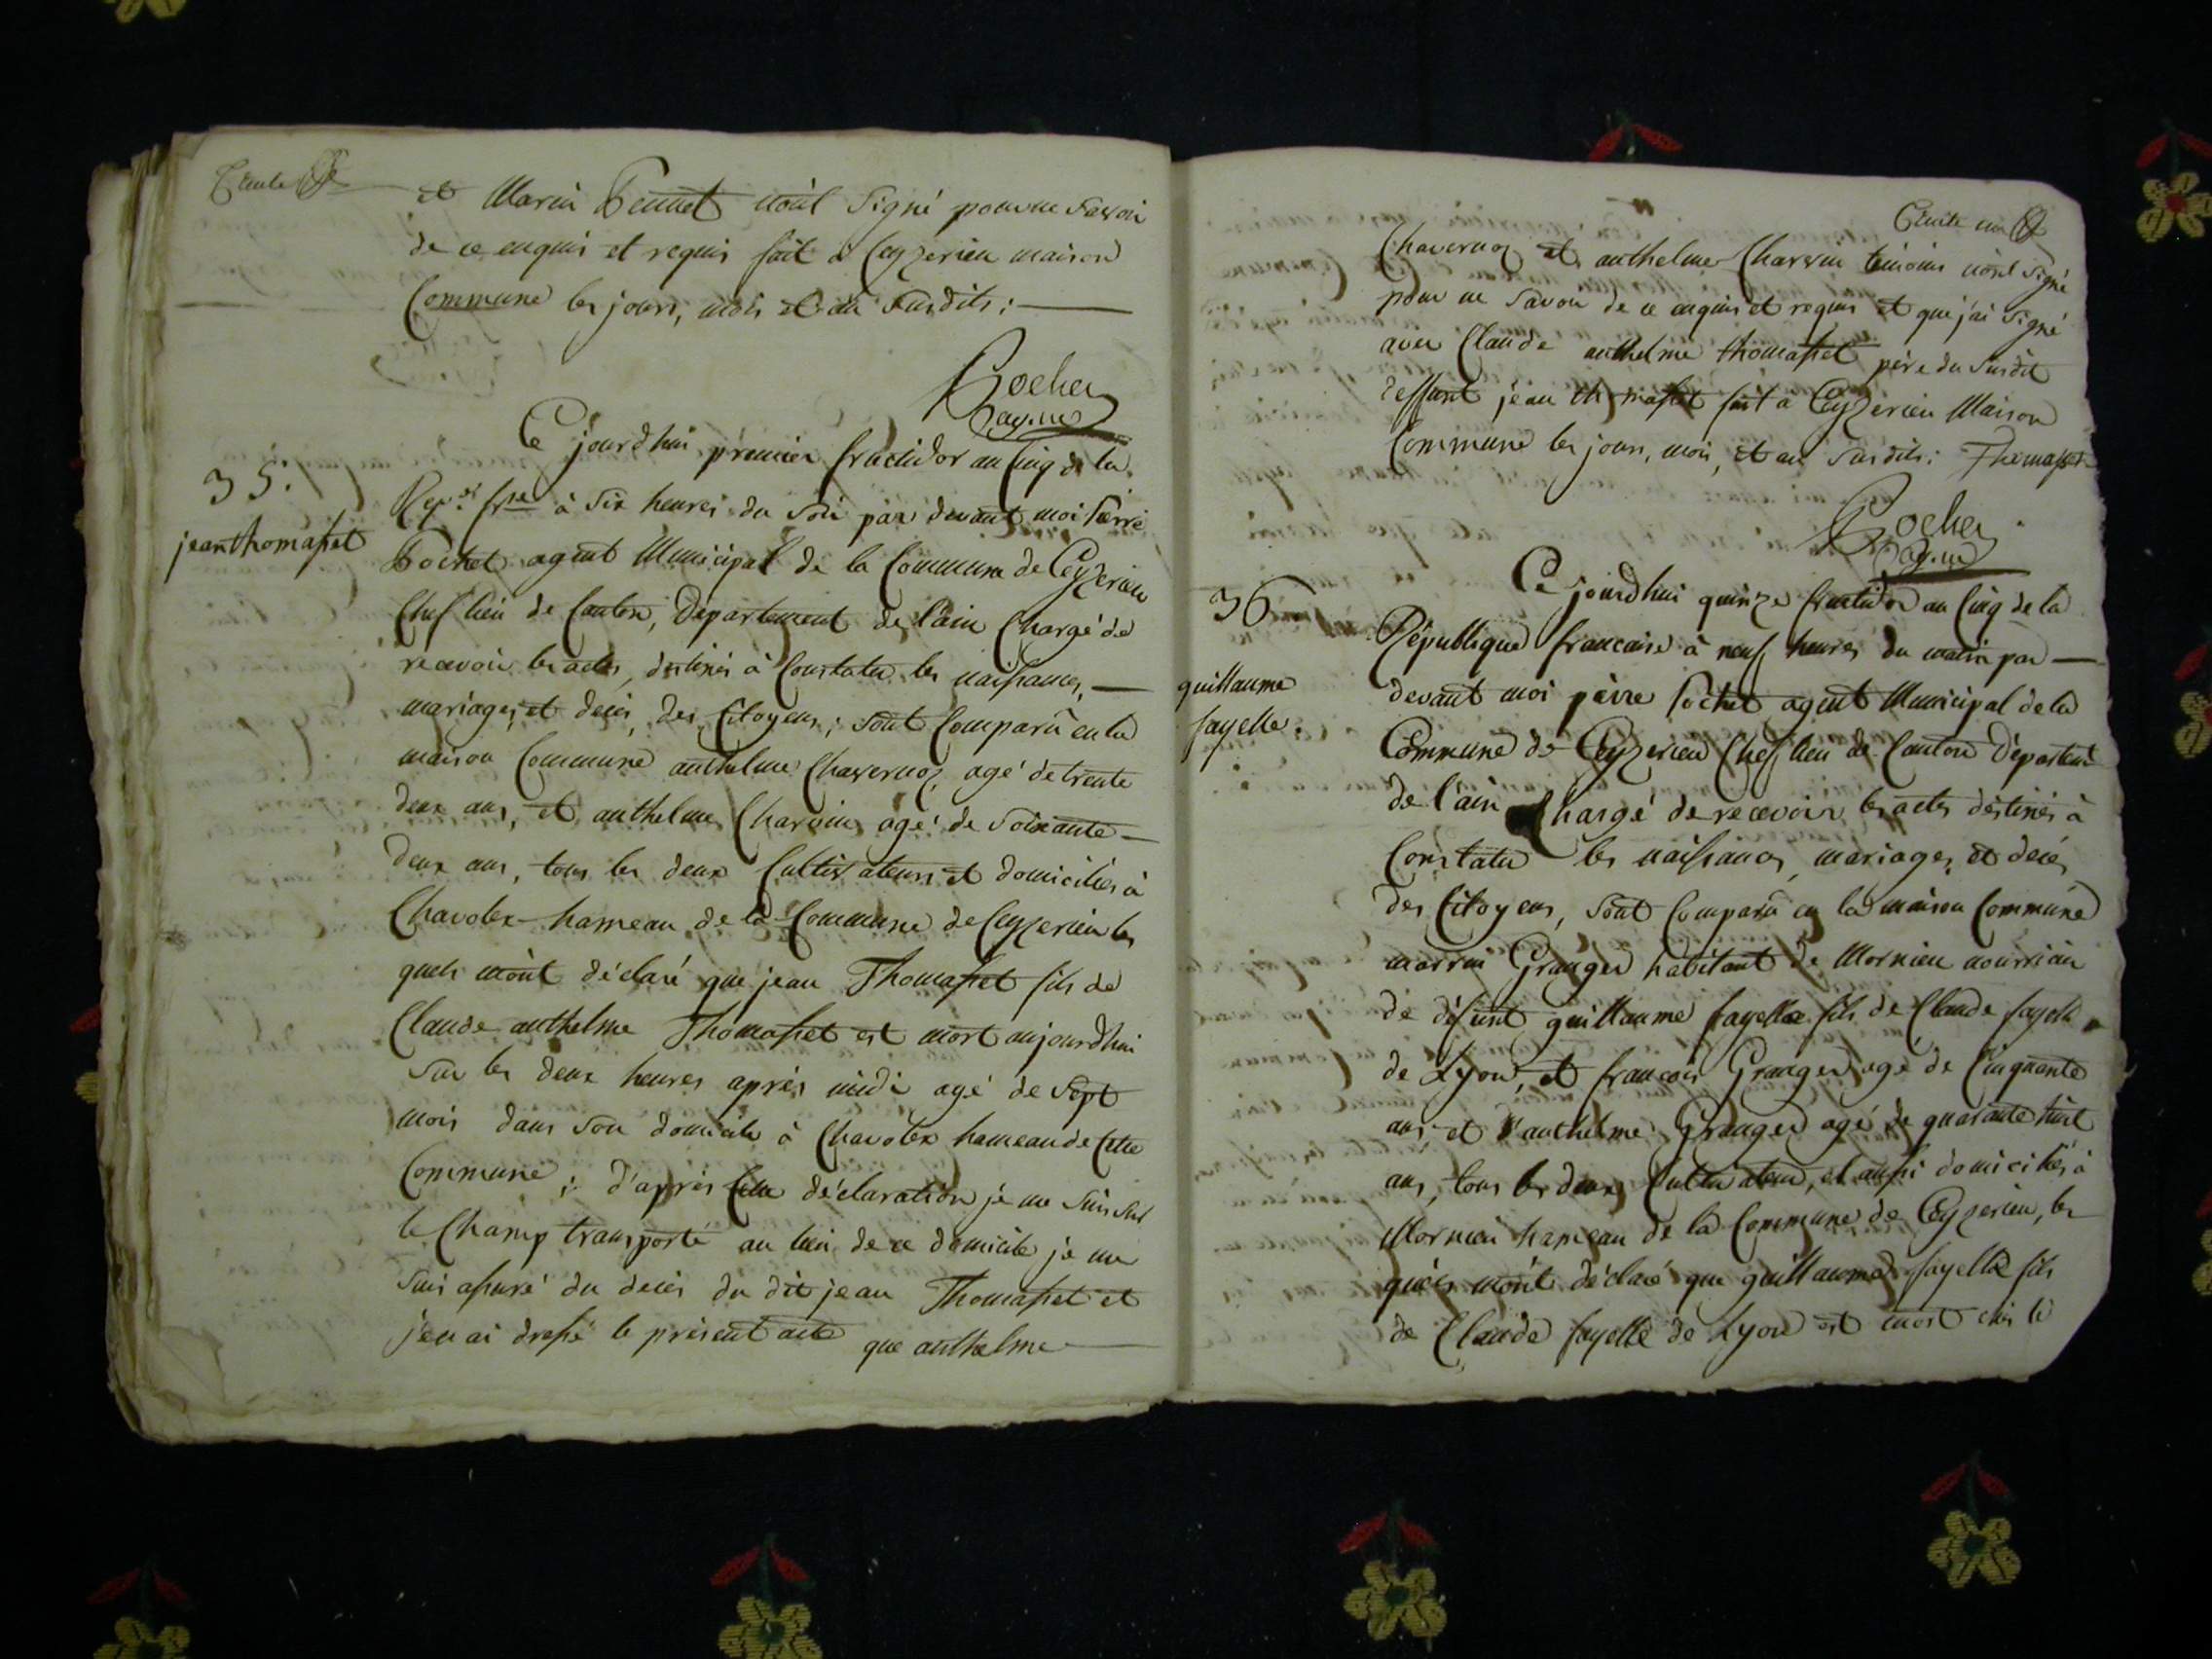 trente
et Marin Bennet n'ont Signé pour ne Savoir
de ce enquis et requis fait à Ceyzerieu maison
Commune les jours, mois et an Susdits :
Pochet
ag. m.
35.
jean thomasset
Ce jourd'hui premier fructidor an Cinq de la
Rep. fse à Six heures du Soir par devant moi Pierre
Pochet agent Municipal de la Commune de Ceyzerieu
Chef lieu de Canton, Département de l'ain Chargé de
recevoir les actes, destinés à Constater les naissances,
mariages, et decés, des Citoyens ; Sont Comparû en la
maison Commune anthelme Chavernoz, agé de trente
deux ans, et anthelme Charvin agé de Soixante
deux ans, tous les deux Cultivateurs et domiciliés à
Chavolex hameau de la Commune de Ceyzerieu les
quels m'ont déclaré que jean Thomasset fils de
Claude anthelme Thomasset est mort aujourd'hui
Sur les deux heures après midi agé de Sept
mois dans Son domicile à Chavolex hameau de Cette
Commune ; d'après Cette déclaration je me Suis Sur
le Champ transporté au lieu de ce domicile je me
Suis assuré du decés du dit jean Thomasset et
j'en ai dressé le présent acte que anthelme
trente un
Chavernoz et anthelme Charvin témoins n'ont Signé
pour ne Savoir de ce enquis et requis et que j'ai Signé
avec Claude anthelme thomasset père du Susdit
deffunt jean thomasset fait à Ceyzerieu Maison
Commune les jours, mois, et an Susdits : Thomasset
Pochet
ag. m.
36
guillaume
fayelle.
Ce jourd'hui quinze fructidor an Cinq de la
République francaise à neuf heures du matin par
devant moi pierre Pochet agent Municipal de la
Commune de Ceyzerieu Chef lieu de Canton Département
de l'ain Chargé de recevoir les actes déstinés à
Constater les naissances, mariages, et decés
des Citoyens, Sont Comparû en la maison Commune
marrin Granger habitant de Mornieu nourricier
de défunt guillaume fayelle fils de Claude fayelle
de Lyon, et francois Granger agé de Cinquante
ans, et anthelme Granger agé de quarante huit
ans, tous les deux Cultivateurs, et aussi domiciliés à
Mornieu hameau de la Commune de Ceyzerieu, les
quels m'ont déclaré que guillaume fayelle fils
de Claude fayelle de Lyon est mort chés le